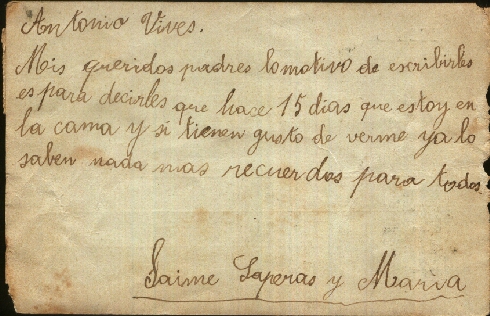 Antonio Vives.
Mis queridos padres lo motivo de escribirles
es para decirles que hace 15 dias que estoy en
la cama y si tienen gusto de verme ya lo
saben nada mas recuerdos para todos.
Jaime Saperas y Maria